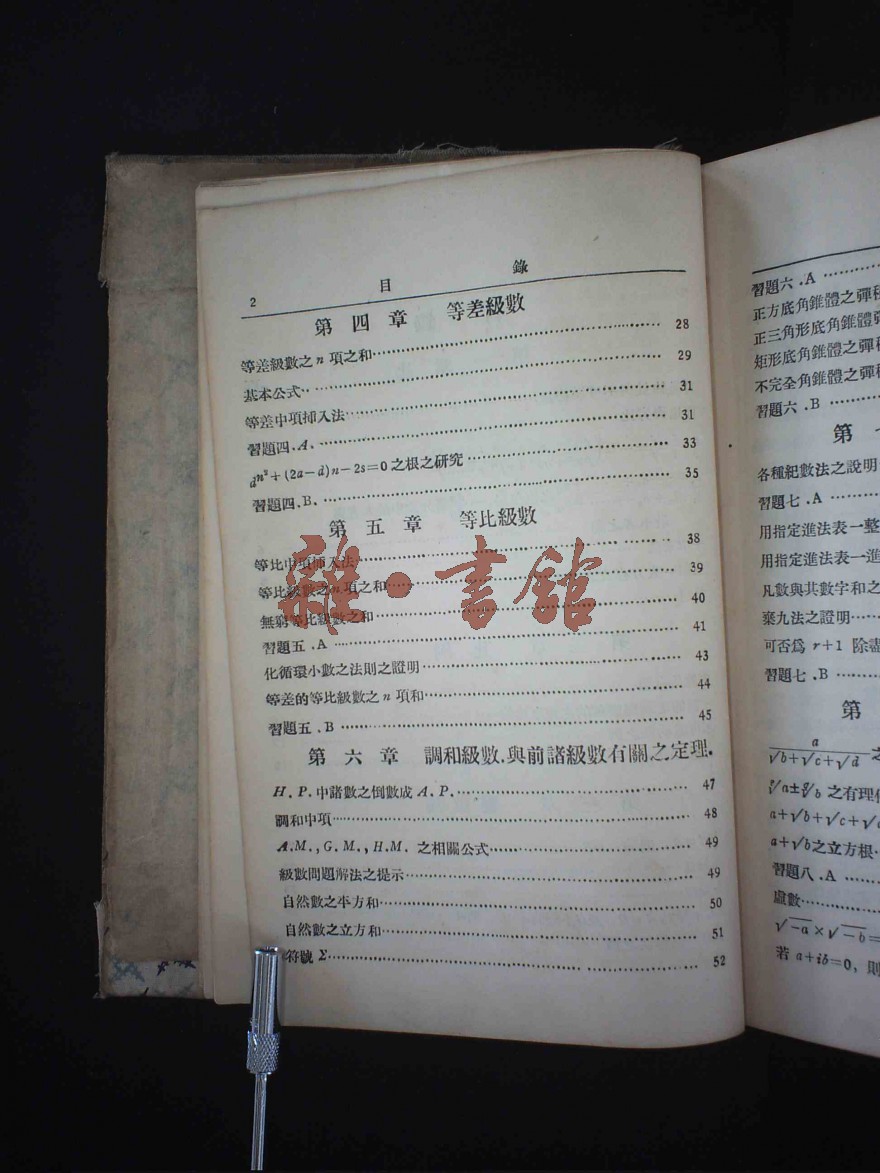 2 目 錄
第四章 等差級數
等差級數之 n 項之和 28
基本公式 29
等差中項挿入法 31
習題四.A. 31
dn²+(2a-d)n-2s=0 之根之研究 33
習題四.B. 35
第五章 等比級數
等比中項挿入法 38
等比級數之 n 項之和 39
無窮等比級數之和 40
習題五.A 41
化循環小數之法則之證明 43
等差的等比級數之 n 項和 44
習題五.B 45
第六章 調和級數.與前諸級數有關之定理.
H.P.中諸數之倒數成 A.P. 47
調和中項 48
A.M.,G.M.,H.M. 之相關公式 49
級數問題解法之提示 49
自然數之平方和 50
自然數之立方和 51
符號 Σ 52
雜·書館
習題六.A
正方底角錐體之彈
正三角形底角錐體
矩形底角錐體之彈
不完全角錐體之彈
習題六.B
第
各種紀數法之說明
習題七.A
用指定進法表一整
用指定進法表一進
凡數與其數字和之
棄九法之證明
可否爲 r+1 除盡
習題七.B
第
a/(√b+√c+√d) 之
之有理
a+√b+√c+√
a+√b之立方根
習題八.A
虛數
√-a×√-b=
若 a+ib=0, 則